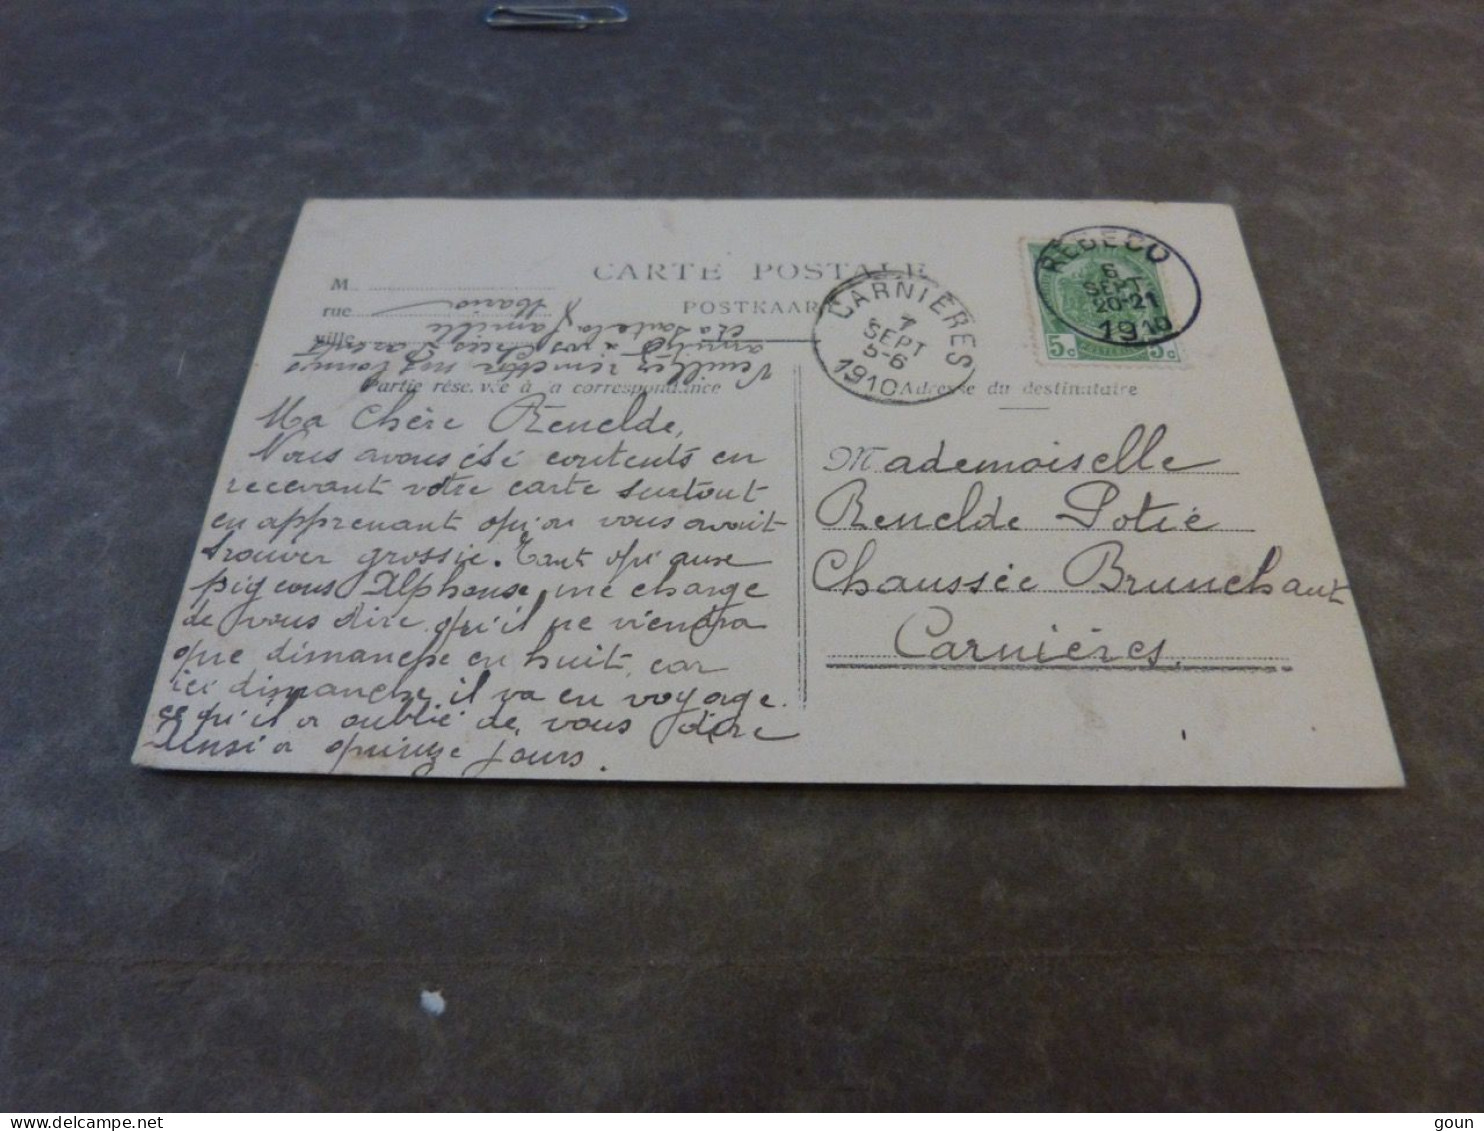 CARTE POSTALE
POSTKAART
M
rue
ville
Partie réservée à la correspondance
Adresse du destinataire
REBECQ
6
SEPT.
20-21
1910
5c 5c
CARNIÈRES
7
SEPT
5-6
1910
Veuillez remettre nos bonnes
amitiés à vos chers Parents
et a toute la famille
Maria
Ma Chère Renelde,
Nous avons été contents en
recevant votre carte surtout
en apprenant qu'on vous avait
trouver grossie. Tant qu'aux
pigeons Alphonse me charge
de vous dire qu'il ne viendra
que dimanche en huit, car
ici dimanche il va en voyage.
ce qu'il a oublié de vous dire
Ainsi a quinze jours.
Mademoiselle
Renelde Potié
Chaussée Brunehaut
Carnières.
www.delcampe.net
goun